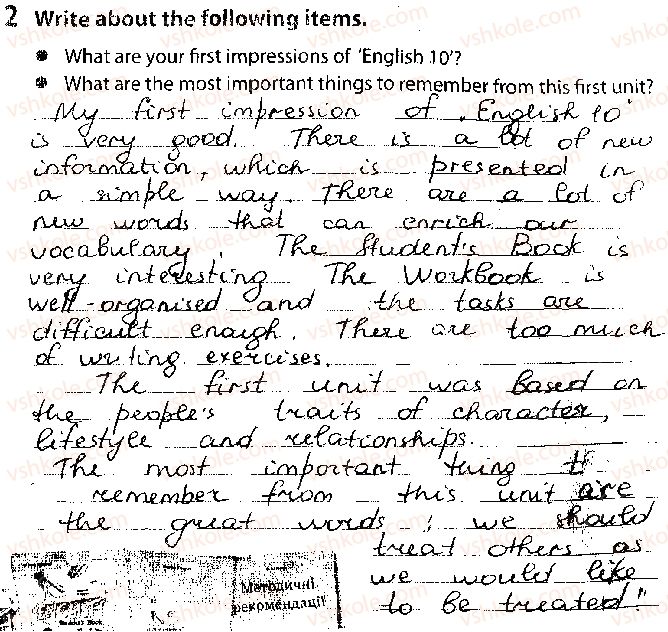 2 Write about the following items.
• What are your first impressions of 'English 10'?
• What are the most important things to remember from this first unit?
My first impression of „English 10"
is very good. There is a lot of new
information, which is presented in
a simple way. There are a lot of
new words that can enrich our
vocabulary. The Student's Book is
very interesting. The Workbook is
well-organised and the tasks are
difficult enough. There are too much
of writing exercises.
The first unit was based on
the people's traits of character,
lifestyle and relationships.
The most important thing
remember from this unit are
the great words: we should
treat others as
we would like
to be treated!"
Методичні
рекомендації
vshkole.com